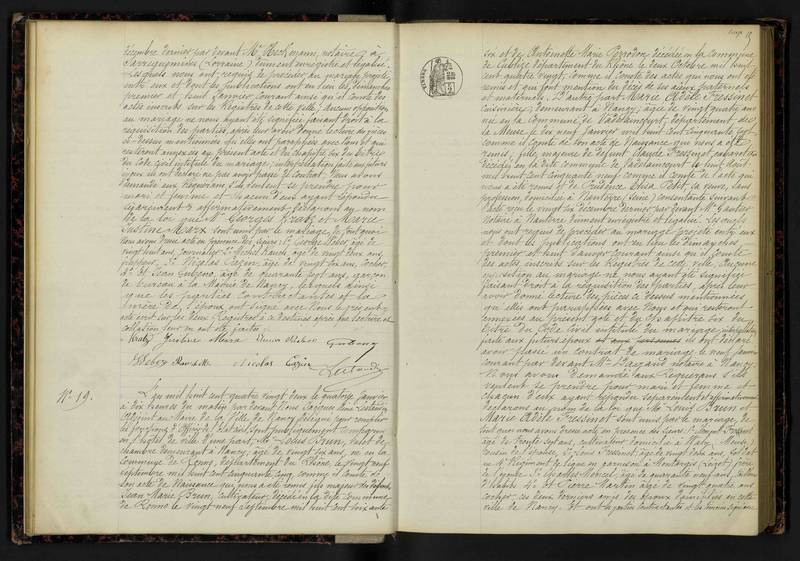 décembre dernier par devant Me Heckmann, notaire à
Sarreguemines (Lorraine) dûment enregistré et légalisé.
Lesquels nous ont requis de procéder au mariage projeté
entre eux et dont les publications ont eu lieu les dimanches
premier et huit Janvier courant ainsi qu'il conste des
actes inscrits sur les Registres de cette ville; Aucune opposition
au mariage ne nous ayant été signifiée faisant droit à la
réquisition des parties, après leur avoir donné lecture des pièces
ci-dessus mentionnées qu'elles ont paraphées avec nous et qui
resteront annexées au présent acte et du chapitre six du titre
du code civil intitulé du mariage, interpellation faite aux futurs
époux ils ont déclaré ne pas avoir passé de contrat. Nous avons
demandé aux Requérans s'ils veulent se prendre pour
mari et femme et chacun d'eux ayant répondu
séparément et affirmativement déclarons au nom
de la loi que Mr Georges Kratz et Marie
Justine Marx sont unis par le mariage, de tout quoi
Nous avons dressé acte en présence des sieurs: 1º George Weber âgé de
vingt huit ans, journalier 2º Michel Rausch, âgé de vingt deux ans,
3º Nicolas Cazin, âgé de vingt six ans, cocher,
4º et Jean âgé de quarante sept ans, garçon
de bureau à la Mairie de Nancy, lesquels ainsi
que les parties contractantes et la
mère de l'époux ont signé avec Nous le présent
acte écrit sur les deux Registres à ce destinés après due lecture et
collation leur en ont été faites.
Kratz Justine Marx
Weber Nicolas Cazin
Nº 19.
L'an mil huit cent quatre vingt deux le quatorze Janvier
à dix heures du matin par devant Nous
Adjoint au Maire de la Ville de Nancy délégué pour remplir
les fonctions d'Officier de l'état civil, sont publiquement comparus
en l'hôtel de ville d'une part, Mr Louis Brun, valet de
chambre demeurant à Nancy, âgé de vingt six ans, né en la
commune de département du Rhône, le vingt neuf
septembre mil huit cent cinquante cinq comme il conste de
son acte de Naissance qui nous a été remis fils majeur des défunts
Jean Marie Brun, cultivateur, décédé en la dite commune
de le vingt neuf Septembre mil huit cent soixante
six et de Antoinette Marie décédée en la commune
de Cublize département du Rhône le deux Octobre mil huit
cent quatre vingt, comme il conste des actes qui nous ont été
remis et qui font mention du décès de ses aïeux paternels
et maternels. D'autre part Marie Adèle Fressinet
cuisinière, demeurant à Nancy, âgée de vingt quatre ans
née en la commune de département de
la Meuse le dix neuf Janvier mil huit cent cinquante sept
comme il conste de son acte de Naissance qui nous a été
remis, fille majeure de défunt
décédé en la dite commune de le huit
mil huit cent cinquante neuf comme il conste de l'acte qui
nous a été remis et de Prudence Elisa Petit, sa veuve, sans
profession, domiciliée à Nanterre, Seine, consentante suivant
acte reçu le vingt six décembre dernier par devant Me
Notaire à Nanterre dûment enregistré et légalisé. Lesquels
nous ont requis de procéder au mariage projeté entre eux
et dont les publications ont eu lieu les dimanches
premier et huit Janvier courant ainsi qu'il conste
des actes inscrits sur les Registres de cette ville. Aucune
opposition au mariage ne nous ayant été signifiée
faisant droit à la réquisition des parties, après leur
avoir donné lecture des pièces ci dessus mentionnées
qu'elles ont paraphées avec Nous et qui resteront
annexées au présent acte et du chapitre six du
titre du Code Civil intitulé du mariage, interpellation
faite aux futurs époux ils ont déclaré
avoir passé un contrat de mariage le neuf Janvier
courant par devant Me notaire à Nancy.
Nous avons demandé aux Requérans s'ils
veulent se prendre pour mari et femme et
chacun d'eux ayant répondu séparément et affirmativement
déclarons au nom de la loi que Mr Louis Brun et
Marie Adèle Fressinet sont unis par le mariage, de
tout quoi nous avons dressé acte en présence des sieurs:
âgé de trente sept ans, cultivateur domicilié à Meuse,
cousin de l'épouse, 2º Louis Fressinet, âgé de vingt deux ans, soldat
au 4e Régiment de ligne en garnison à frère
de l'épouse, 3º Charles âgé de quarante neuf ans,
4º et Pierre Martin âgé de vingt quatre ans
cocher, ces deux derniers amis des époux domiciliés en cette
ville de Nancy. Et ont les parties contractantes et les témoins signé avec